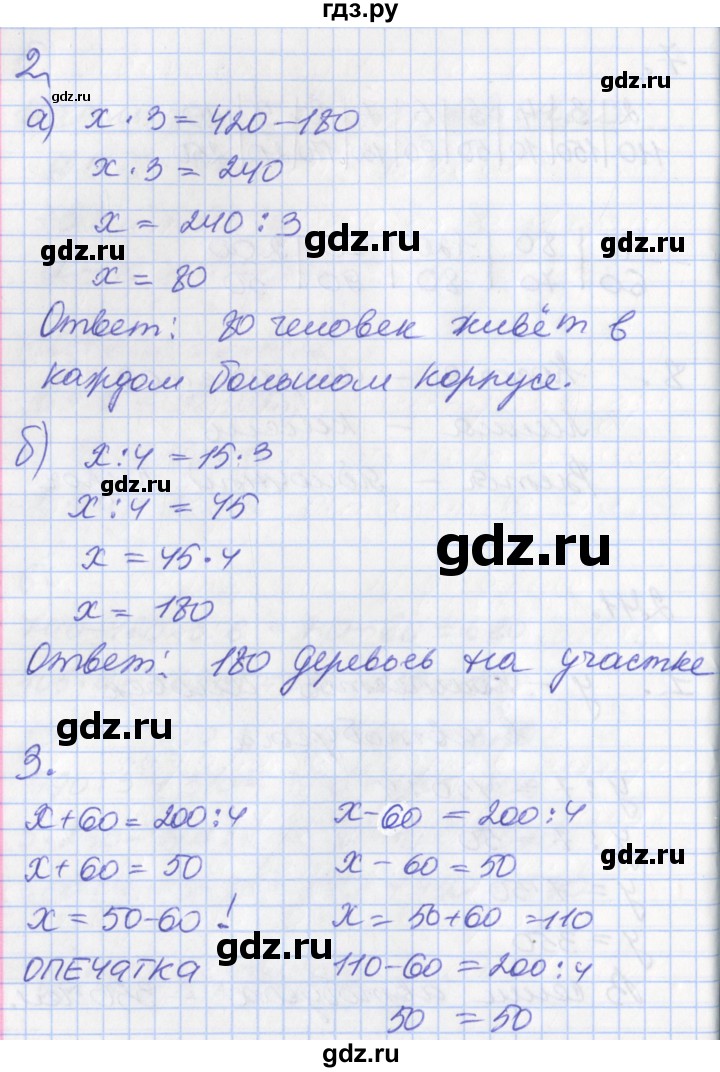 гдз.ру
2,
gdz.ru
gdz.ru
а) x · 3 = 420 - 180
x · 3 = 240
x = 240 : 3
gdz.ru
gdz.ru
gdz.ru
x = 80
Ответ: 80 человек живёт в
каждом большом корпусе.
б) x : 4 = 15 · 3
gdz.ru
x : 4 = 45
x = 45 · 4
gdz.ru
x = 180
Ответ: 180 деревьев на участке
gdz.ru
3.
x + 60 = 200 : 4 x - 60 = 200 : 4
x + 60 = 50 x - 60 = 50
gdz.ru
x = 50 - 60 ! x = 50 + 60 = 110
gdz.ru
ОПЕЧАТКА 110 - 60 = 200 : 4
50 = 50
gdz.ru